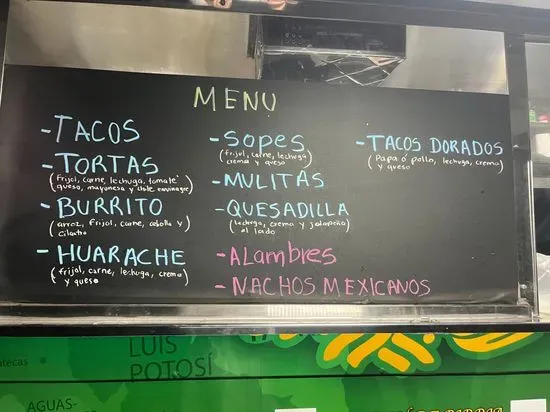 MENU
-TACOS
-TORTAS
(Frijol, carne, lechuga, tomate
queso, mayonesa y chile envinagre)
-BURRITO
(arroz, frijol, carne, cebolla y
cilantro)
-HUARACHE
(frijol, carne, lechuga, crema
y queso)
-SOPES
(frijol, carne, lechuga
crema y queso)
-MULITAS
-QUESADILLA
(lechuga, crema y jalapeño
al lado)
-ALambres
-NACHOS MEXICANOS
-TACOS DORADOS
(Papa ó pollo, lechuga, crema
y queso)
LUIS
POTOSÍ
AGUAS-